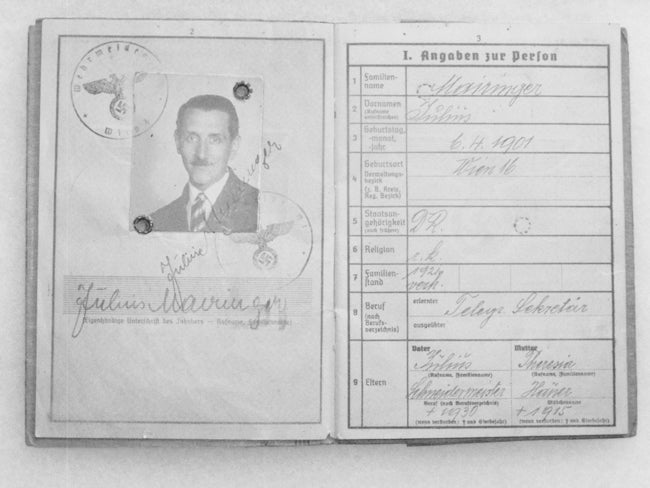 2
Wehrmeldeamt
Wien
Julius Mairinger
Julius Mairinger
(Eigenhändige Unterschrift des Inhabers — Rufname, Familienname)
3
I. Angaben zur Person
1 Familien-
name Mairinger
2 Vornamen
(Rufname
unterstreichen) Julius
3 Geburtstag,
-monat,
-jahr 6. 4. 1901
4 Geburtsort
Verwaltungs-
bezirk
(z. B. Kreis,
Reg. Bezirk) Wien 16
5 Staatsan-
gehörigkeit
(auch frühere) D.R.
6 Religion r. k.
7 Familien-
stand verh.
8 Beruf
(nach
Berufs-
verzeichnis)
erlernter
ausgeübter
Telegr. Sekretär
9 Eltern
Vater Mutter
Julius Theresia
(Rufname, Familienname) (Rufname, Familienname)
Schneidermeister
Beruf (nach Berufsverzeichnis) Mädchenname
† 1930 † 1915
(wenn verstorben: † und Sterbejahr) (wenn verstorben: † und Sterbejahr)